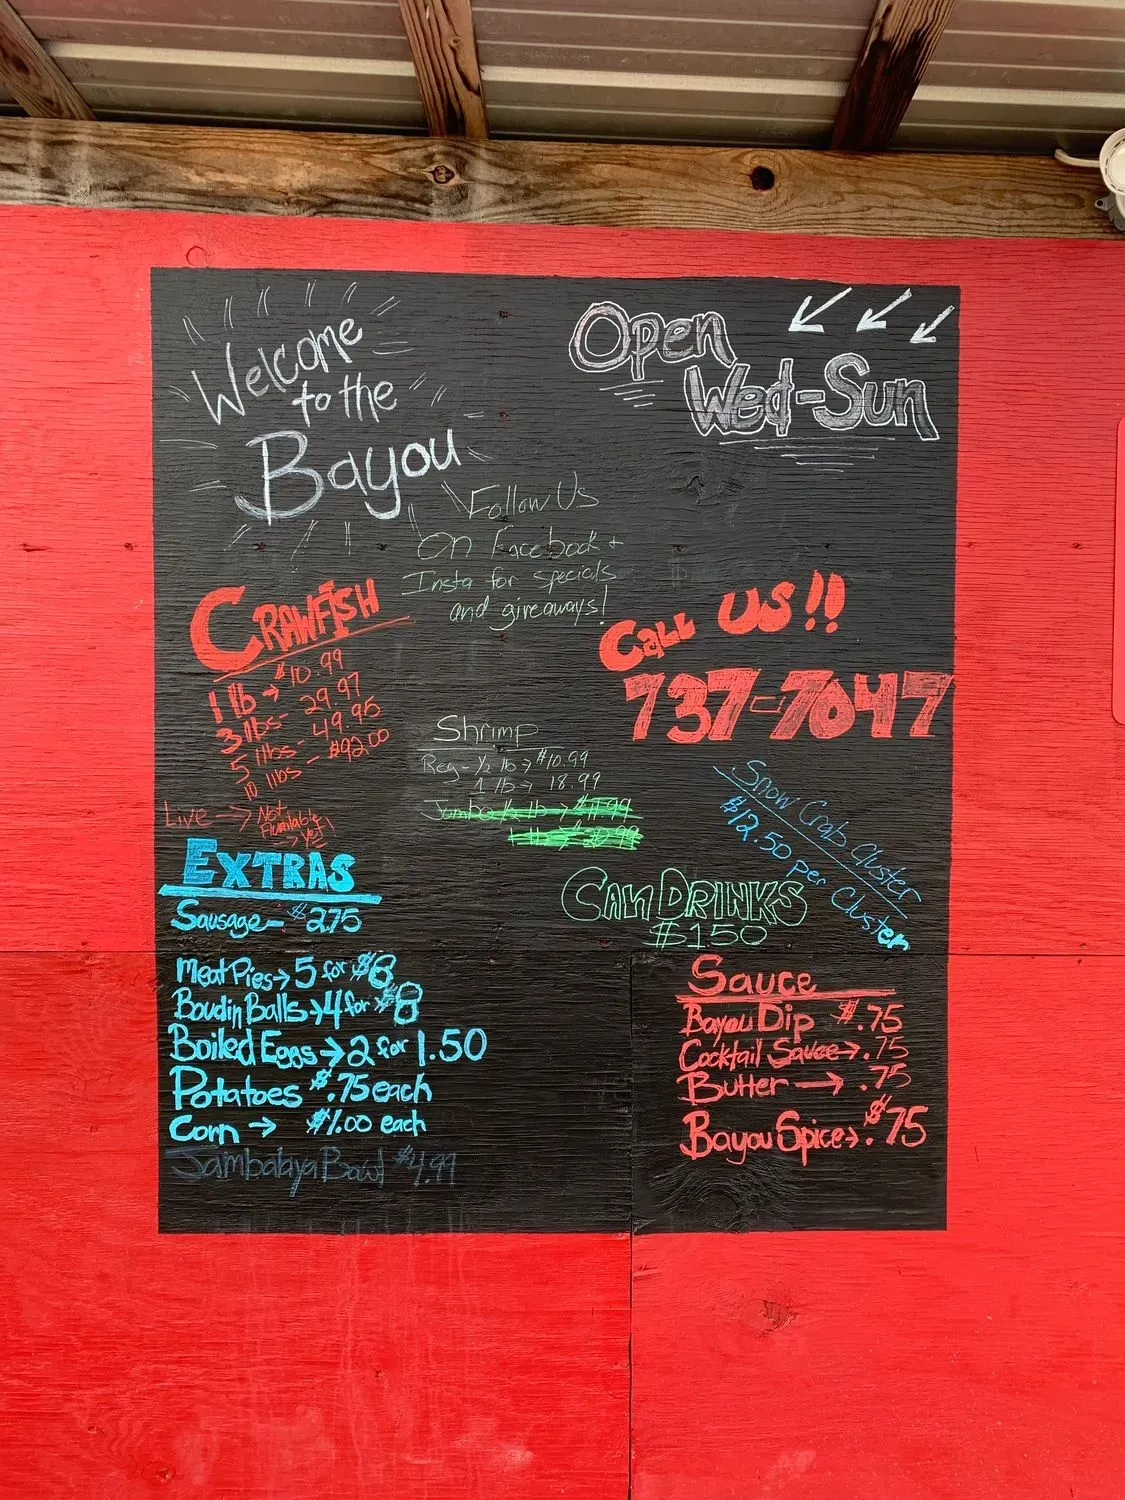 Welcome
to the
Bayou
Open
Wed-Sun
Follow Us
On Facebook +
Insta for specials
and giveaways!
CRAWFISH
1 lb → $10.99
3 lbs - 29.97
5 lbs - 49.95
10 lbs - $92.00
Live → Not
Available
→ yet!
CALL US!!
737-7047
Shrimp
Reg - 1/2 lb → $10.99
1 lb → 18.99
Jumbo 1/2 lb → $11.99
1 lb → 20.99
Snow Crab Cluster
$12.50 per Cluster
EXTRAS
Sausage - $2.75
Meat Pies → 5 for $8
Boudin Balls → 4 for $8
Boiled Eggs → 2 for 1.50
Potatoes $.75 each
Corn → $1.00 each
Jambalaya Bowl $4.99
CAN DRINKS
$150
Sauce
Bayou Dip $.75
Cocktail Sauce → .75
Butter → .75
Bayou Spice → $.75